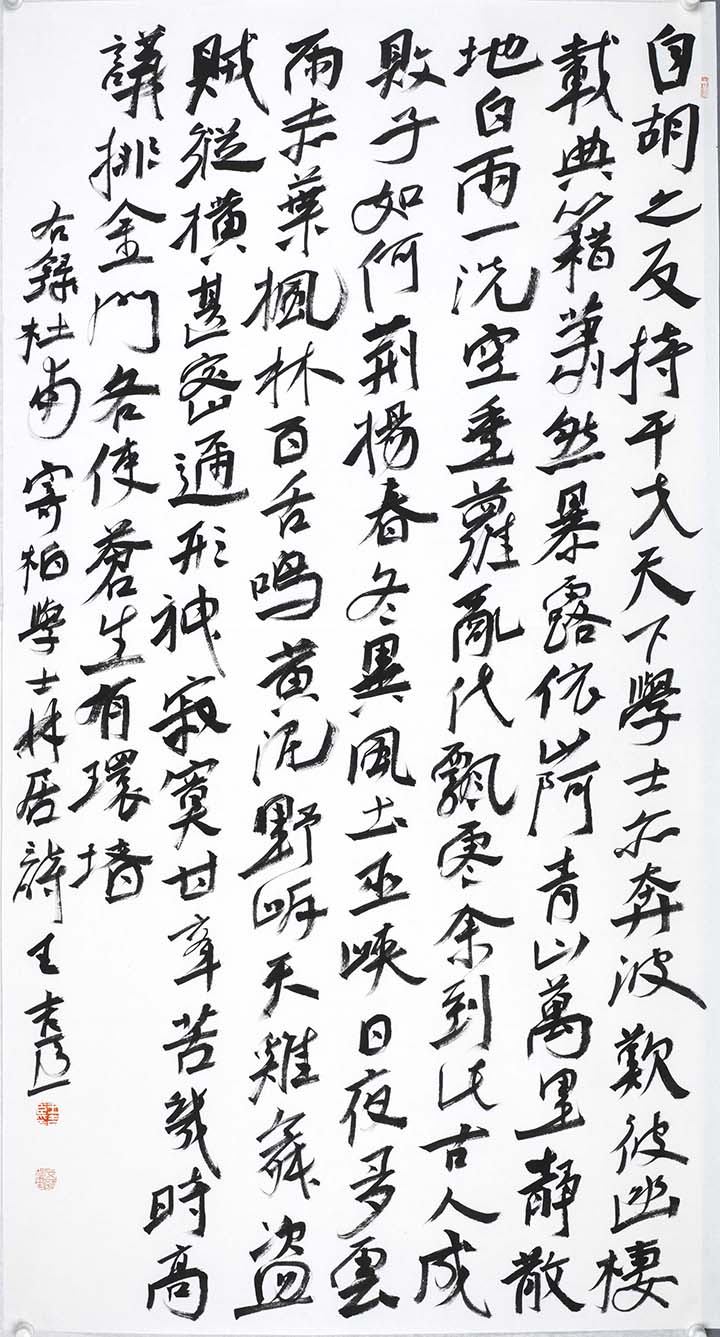 自胡之反持干戈天下學士亦奔波歎彼幽棲
載典籍蕭然暴露依山阿青山萬里靜散
地白雨一洗空垂蘿亂代飄零余到此古人成
敗子如何荊揚春冬異風土巫峽日夜多雲
雨赤葉楓林百舌鳴黃泥野岸天雞舞盜
賊縱橫甚密邇形神寂寞甘辛苦幾時高
議排金門各使蒼生有環堵
右錄杜甫寄柏學士林居詩 王